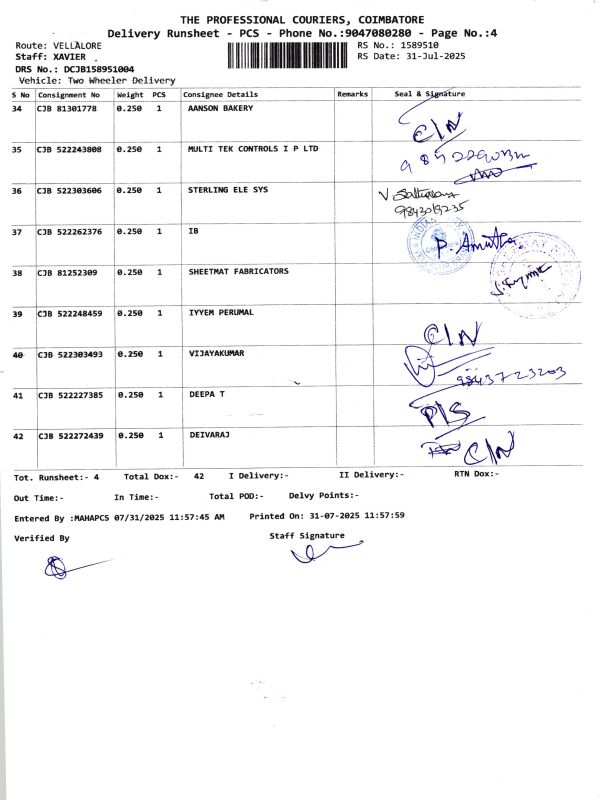 THE PROFESSIONAL COURIERS, COIMBATORE
Delivery Runsheet - PCS - Phone No.:9047080280 - Page No.:4
Route: VELLALORE RS No.: 1589510
Staff: XAVIER RS Date: 31-Jul-2025
DRS No.: DCJB158951004
Vehicle: Two Wheeler Delivery
S No Consignment No Weight PCS Consignee Details Remarks Seal & Signature
34 CJB 81301778 0.250 1 AANSON BAKERY C/N
35 CJB 522243808 0.250 1 MULTI TEK CONTROLS I P LTD
36 CJB 522303606 0.250 1 STERLING ELE SYS
9843019235
37 CJB 522262376 0.250 1 IB P. Amutha
38 CJB 81252309 0.250 1 SHEETMAT FABRICATORS
39 CJB 522248459 0.250 1 IYYEM PERUMAL C/N
40 CJB 522303493 0.250 1 VIJAYAKUMAR 9843723203
41 CJB 522227385 0.250 1 DEEPA T P/S
42 CJB 522272439 0.250 1 DEIVARAJ C/N
Tot. Runsheet:- 4 Total Dox:- 42 I Delivery:- II Delivery:- RTN Dox:-
Out Time:- In Time:- Total POD:- Delvy Points:-
Entered By :MAHAPCS 07/31/2025 11:57:45 AM Printed On: 31-07-2025 11:57:59
Verified By Staff Signature